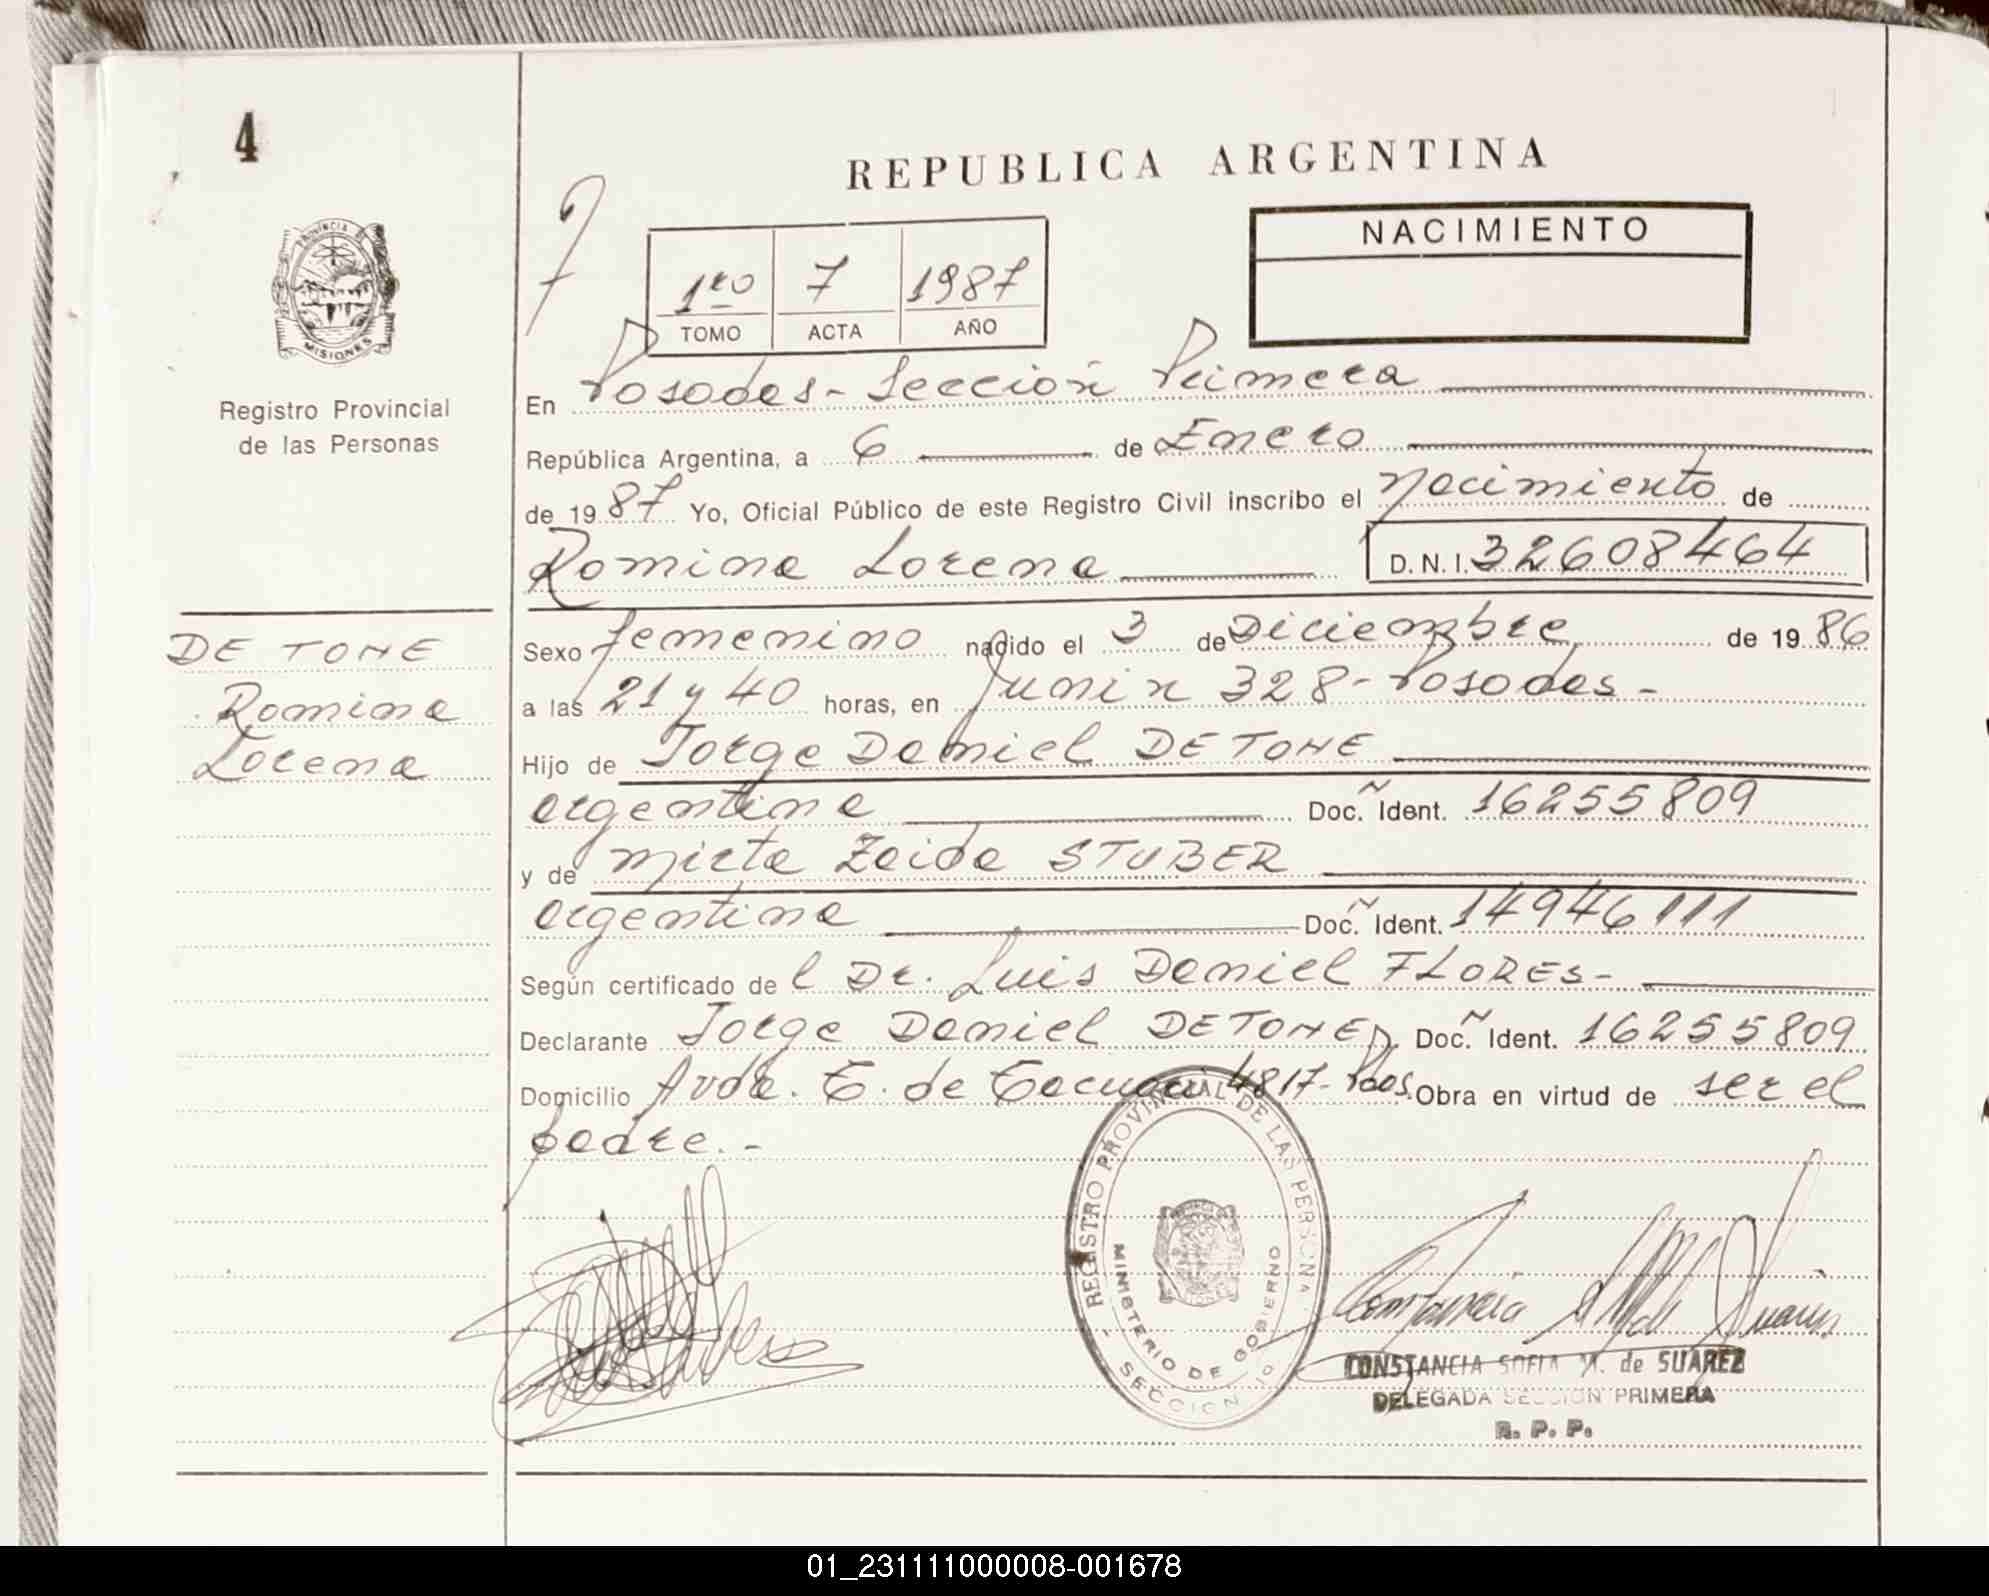 4
REPUBLICA ARGENTINA
7
1ro 7 1987
TOMO ACTA AÑO
NACIMIENTO
PROVINCIA DE
MISIONES
Registro Provincial
de las Personas
En Posadas - Sección Primera
República Argentina, a 6 de Enero
de 19 87 Yo, Oficial Público de este Registro Civil inscribo el Nacimiento de
Romina Lorena D. N. I. 32608464
DE TONE
Romina
Lorena
Sexo femenino nacido el 3 de Diciembre de 19 86
a las 21 y 40 horas, en Junin 328 - Posadas -
Hijo de Jorge Daniel DE TONE
argentina Doc. Ident. 16255809
y de Mirta Zaida STUBER
argentina Doc. Ident. 14946111
Según certificado de l Dr. Luis Daniel FLORES -
Declarante Jorge Daniel DE TONE Doc. Ident. 16255809
Domicilio Avda. T. de Tacuari 4817 - Pdas. Obra en virtud de ser el
padre. -
REGISTRO PROVINCIAL DE LAS PERSONAS
MINISTERIO DE GOBIERNO
- SECCION 1º
CONSTANCIA SOFIA M. de SUAREZ
DELEGADA SECCION PRIMERA
R. P. P.
01_231111000008-001678